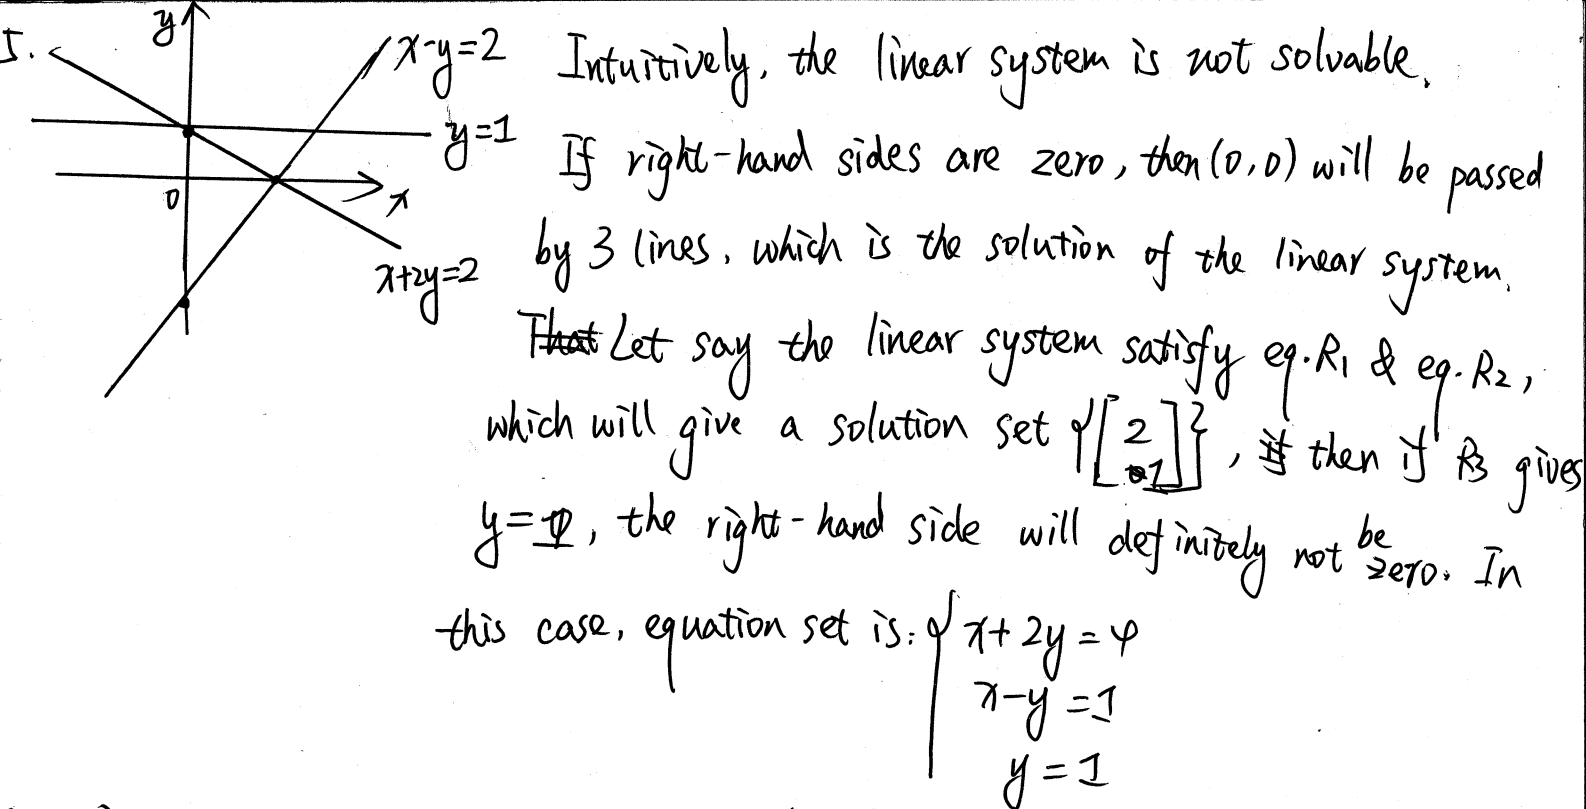 5.
y
x-y=2
y=1
0
x
x+2y=2
Intuitively, the linear system is not solvable.
If right-hand sides are zero, then (0,0) will be passed
by 3 lines, which is the solution of the linear system.
That Let say the linear system satisfy eq. R1 & eq. R2,
which will give a solution set {[2
1]}, if then if R3 gives
y=1, the right-hand side will definitely not be zero. In
this case, equation set is: { x+2y=4
x-y=1
y=1